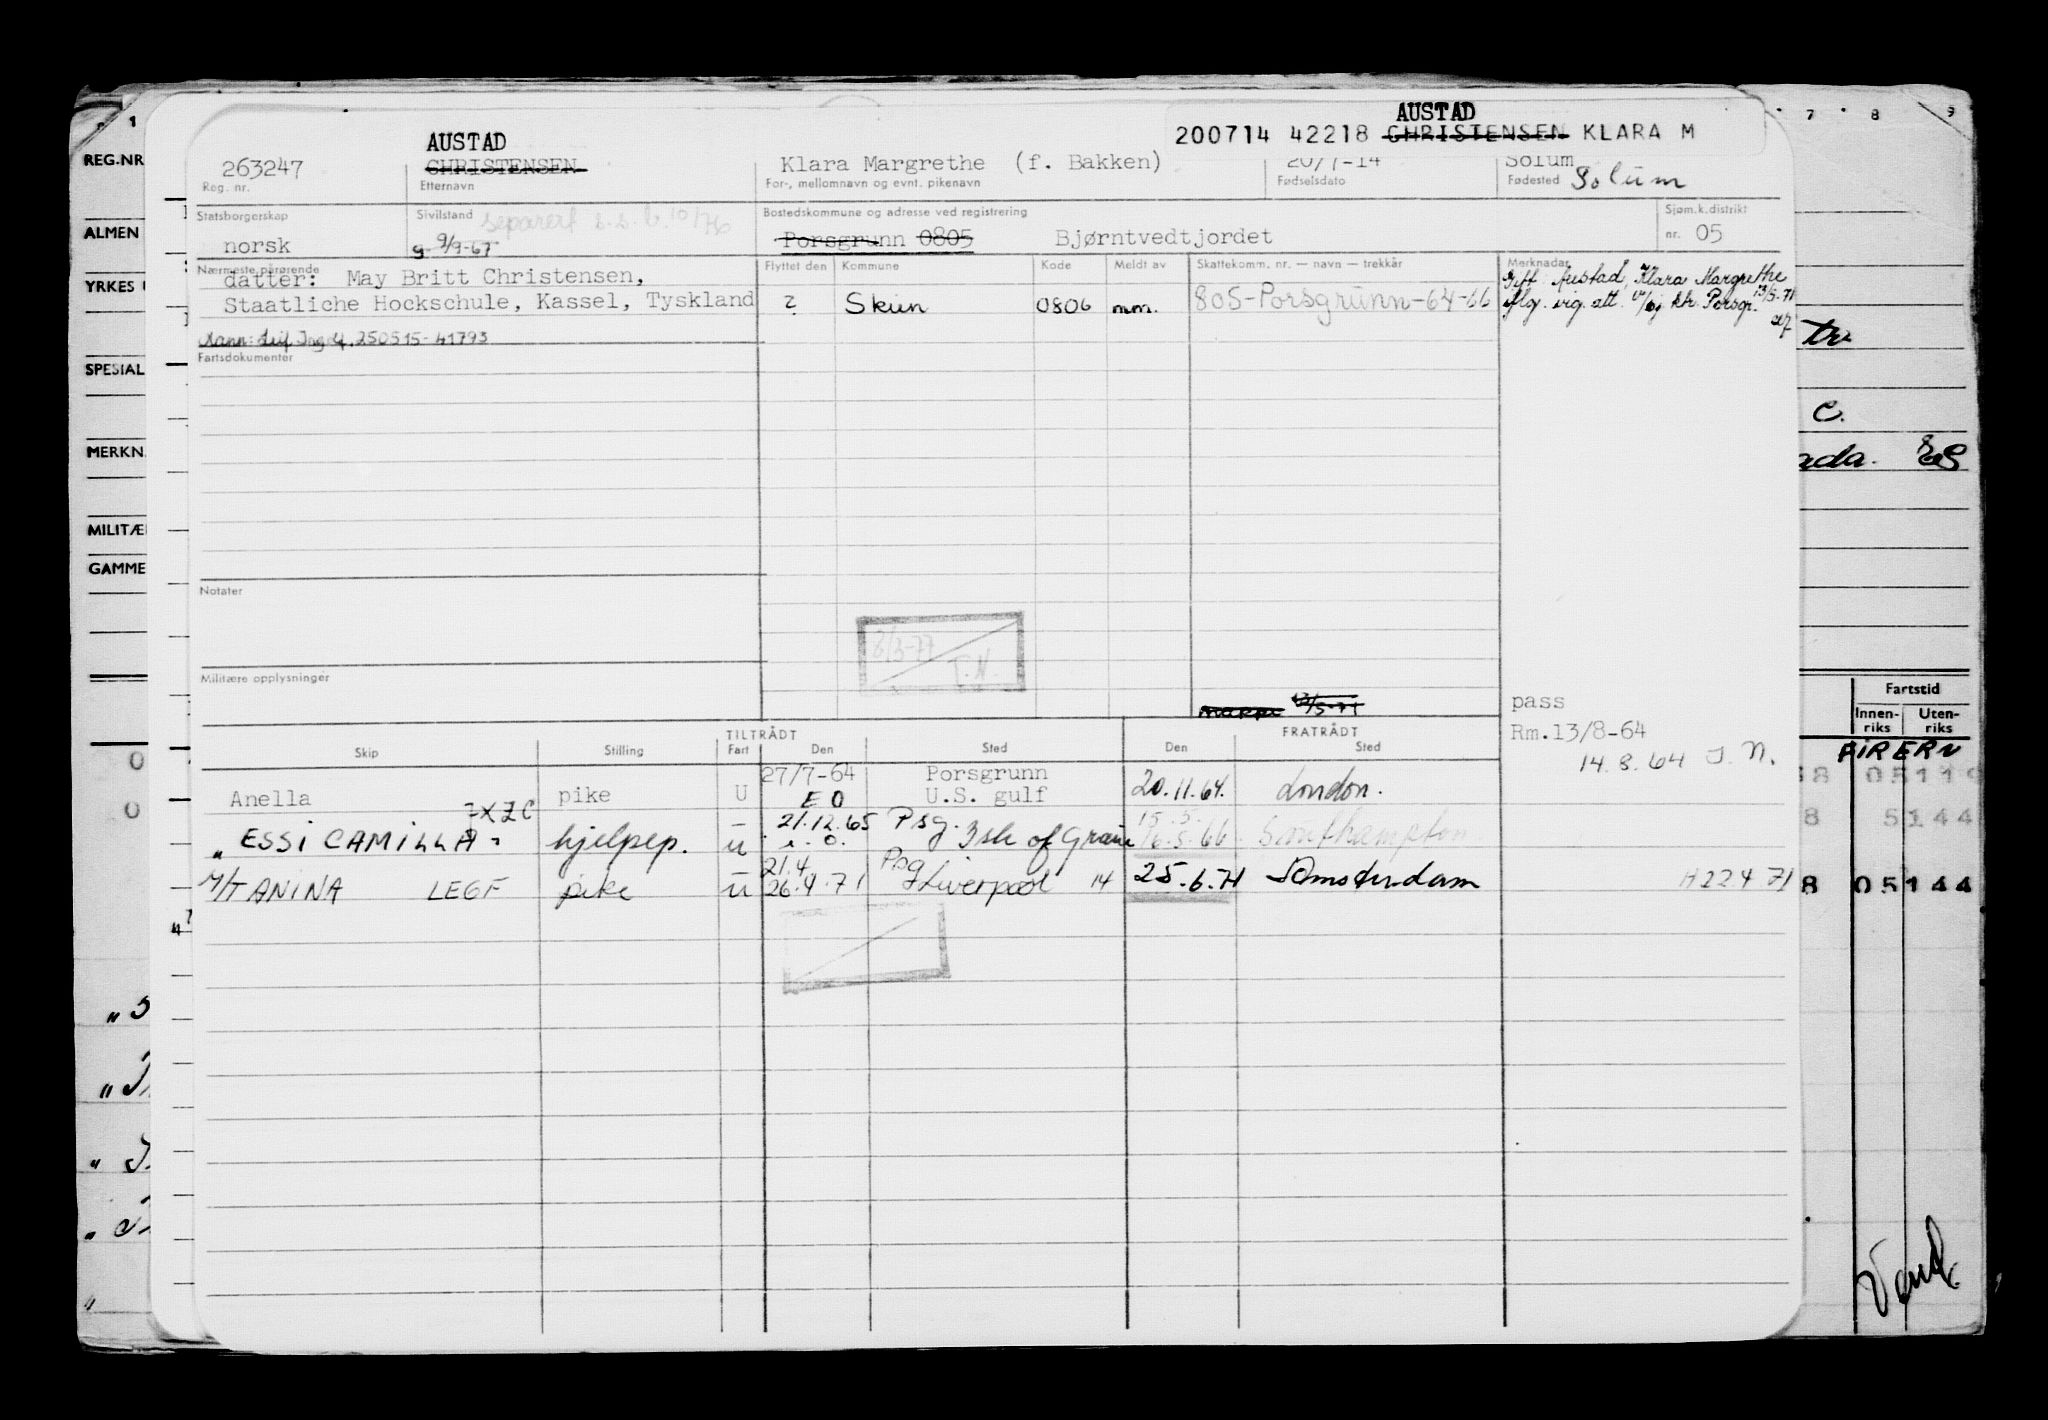 AUSTAD
200714 42218 CHRISTENSEN KLARA M
AUSTAD
263247 CHRISTENSEN Klara Margrethe (f. Bakken) 20/7-14 Solum
Reg. nr. Etternavn For-, mellomnavn og evnt. pikenavn Fødselsdato Fødested Solum
Statsborgerskap Sivilstand separert s.s.b. 10/76 Bostedskommune og adresse ved registrering Sjøm.k.distrikt
norsk g 9/9-67 Porsgrunn 0805 Bjørntvedtjordet nr. 05
Nærmeste pårørende Flyttet den Kommune Kode Meldt av Skattekomm. nr. — navn — trekkår Merknader
datter: May Britt Christensen,
Staatliche Hockschule, Kassel, Tyskland ? Skien 0806 mm. 805-Porsgrunn-64-66
Gift Austad, Klara Margrethe
13/5-71
Mann: Leif Ingolf. 250515-41793
Fartsdokumenter
Notater
8/3-77
T.N.
Militære opplysninger
13/5-71
pass
Rm.13/8-64
14.8.64 T.N.
TILTRÅDT FRATRÅDT
Skip Stilling Fart Den Sted Den Sted
Anella pike U 27/7-64 Porsgrunn
E O U.S. gulf 20.11.64. London.
"ESSI CAMILLA" 7XZC hjelpep. u 21.12.65 Psg. Isle of Grain 15.5.
16.5.66. Southampton
M/T ANINA LEGF pike u 21.4 Psg
26.4.71 Liverpool 14 25.6.71 Amsterdam H 22 4 71
1 7 8 9
REG.NR
ALMEN
YRKES
SPESIAL
MERKN.
MILITÆ
GAMME
tr.
C.
Fartstid
Innen-
riks
Uten-
riks
8 05119
8 5144
8 05144
0
0